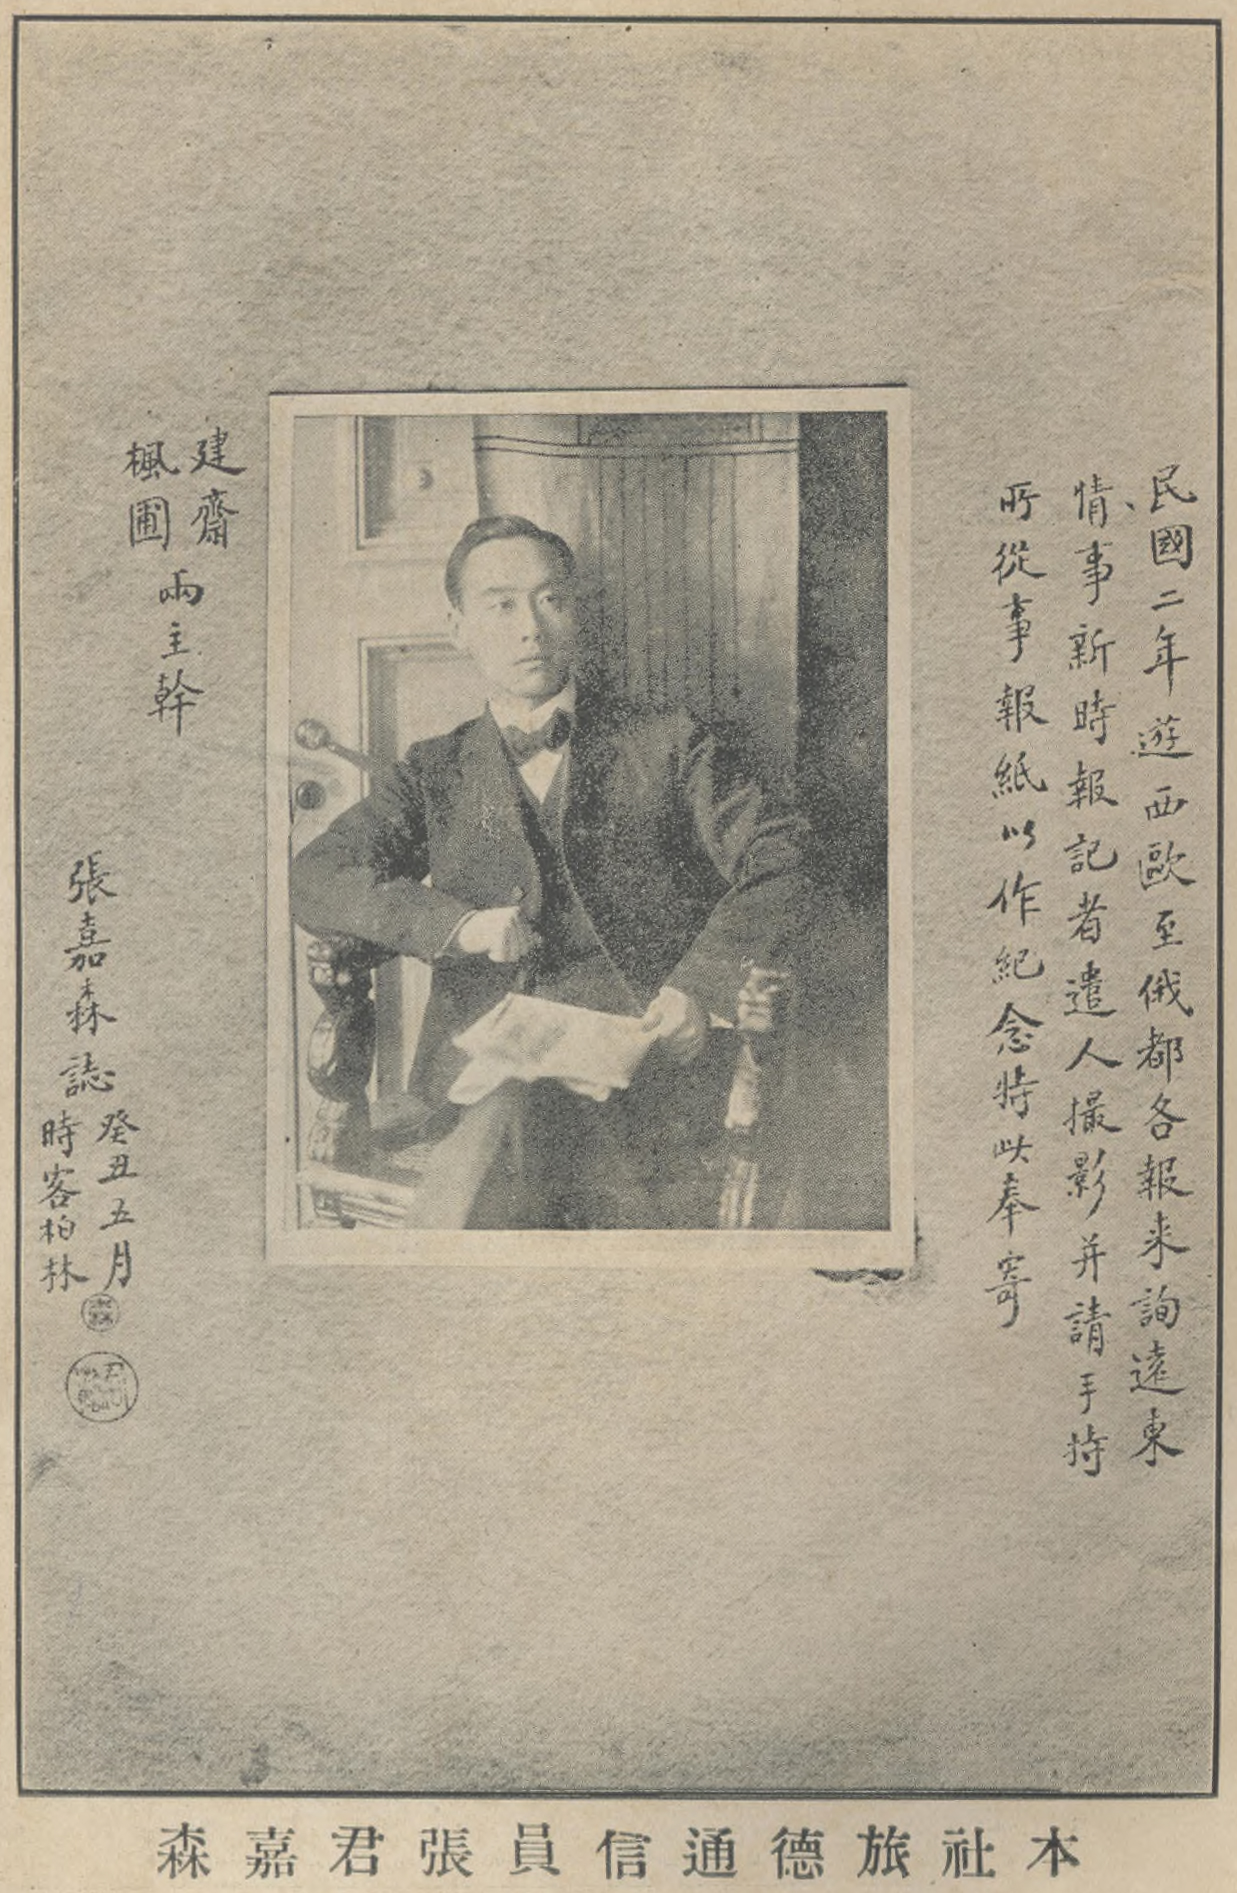 民國二年遊西歐至俄都各報来詢遠東
情事新時報記者遣人撮影并請手持
所從事報紙以作紀念特此奉寄
建齋
楓圃
兩主幹
張嘉森誌
癸丑五月
時客柏林
本社旅德通信員張君嘉森